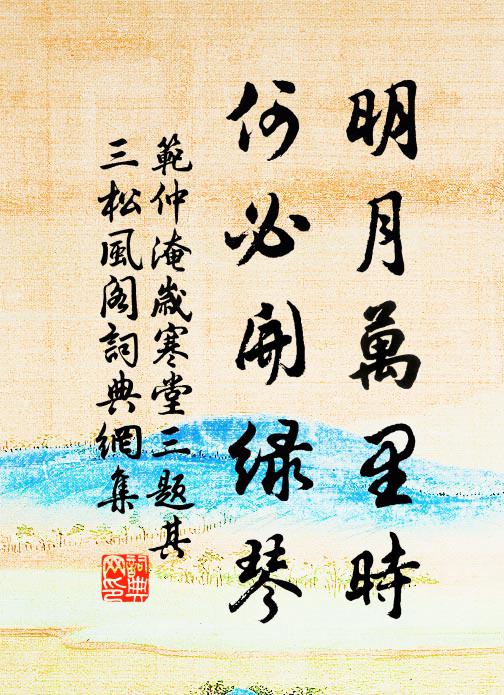 明月萬里時
何必開綠琴
範仲淹歲寒堂三題其
三松風阁詞典網集
詞典